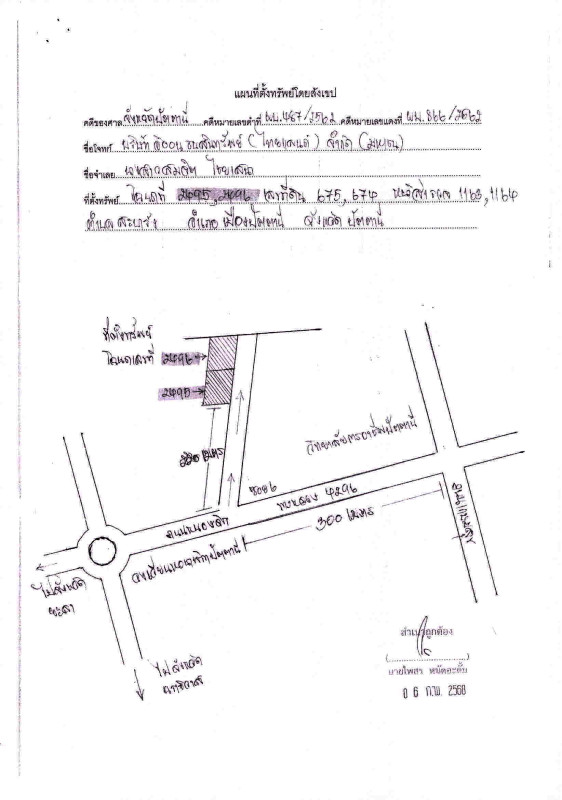 แผนที่ตั้งทรัพย์โดยสังเขป
คดีของศาล จังหวัดปัตตานี คดีหมายเลขดำที่ ผบ.467/2562 คดีหมายเลขแดงที่ ผบ.866/2562
ชื่อโจทก์ บริษัท อิออน ธนสินทรัพย์ (ไทยแลนด์) จำกัด (มหาชน)
ชื่อจำเลย นางสาวสมจิต
ที่ตั้งทรัพย์ โฉนดที่ 2495, 2496 เลขที่ดิน 675, 674 หน้าสำรวจ 1163, 1164
ตำบล สะบารัง อำเภอ เมืองปัตตานี จังหวัด ปัตตานี
ที่ตั้งทรัพย์
โฉนดเลขที่ 2496
2495
เมตร
วิทยาลัยการอาชีพปัตตานี
ซอย 6
ทางหลวง 4296
ถนนหนองจิก
300 เมตร
ไปจังหวัด
ยะลา
ไปจังหวัด
นราธิวาส
สำเนาถูกต้อง
0 6 ก.พ. 2568